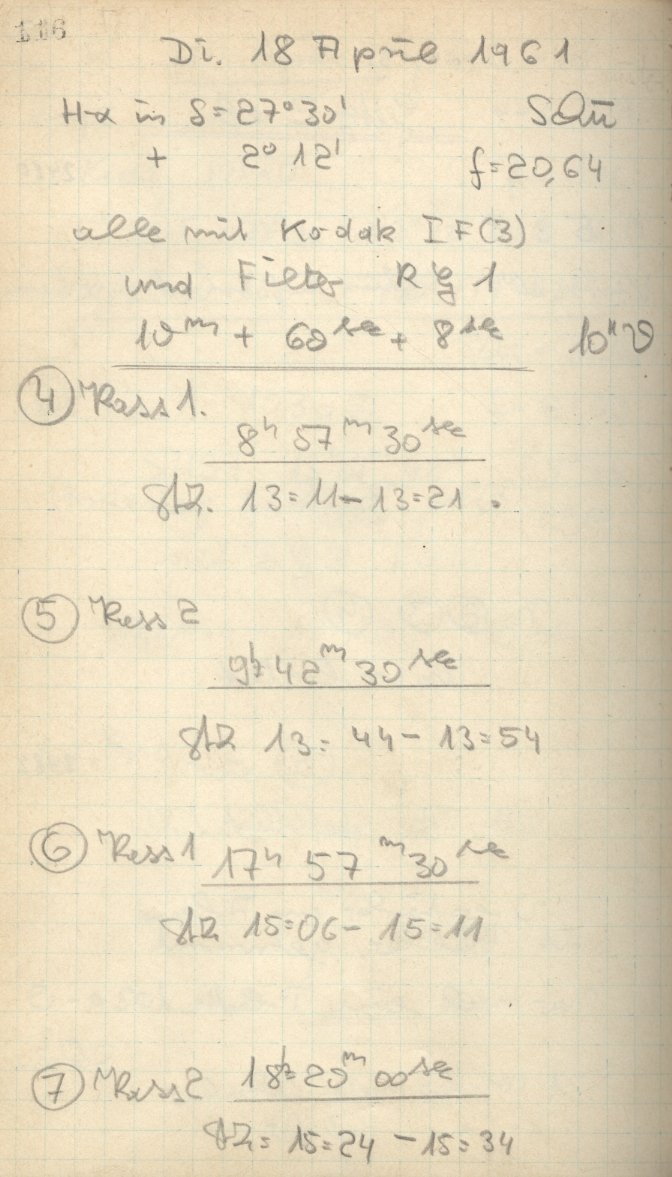 116
Di. 18 April 1961
H-α in δ=27°30' SQü
+ 2° 12' f=20,64
alle mit Kodak IF(3)
und Filter Rg 1
10ᵐ + 60ˢᵉᶜ + 8ˢᵉᶜ
④ Kass 1.
8ʰ 57ᵐ 30ˢᵉᶜ
StZ. 13=11–13=21.
⑤ Kass 2
9ʰ 42ᵐ 30ˢᵉᶜ
StZ 13=44–13=54
⑥ Kass 1 17ʰ 57ᵐ 30ˢᵉᶜ
StZ 15=06–15=11
⑦ Kass 2 18ʰ 20ᵐ 00ˢᵉᶜ
StZ=15=24–15=34